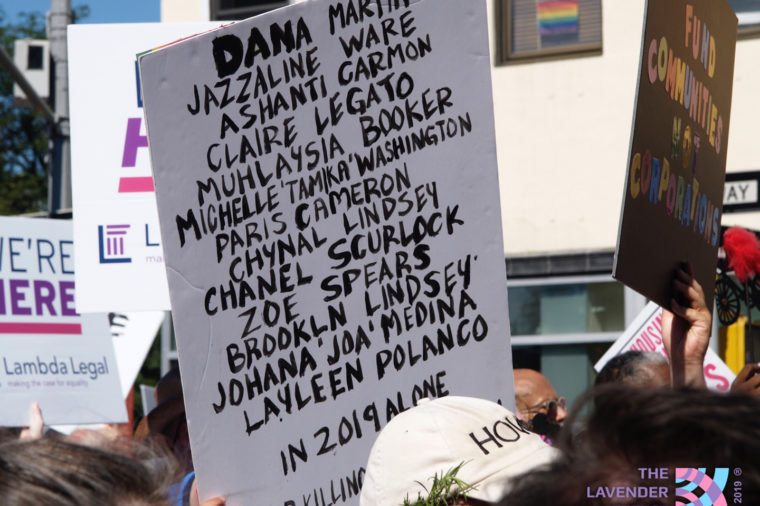 DANA MARTIN
JAZZALINE WARE
ASHANTI CARMON
CLAIRE LEGATO
MUHLAYSIA BOOKER
MICHELLE 'TAMIKA' WASHINGTON
PARIS CAMERON
CHYNAL LINDSEY
CHANEL SCURLOCK
ZOE SPEARS
BROOKLN LINDSEY
JOHANA 'JOA' MEDINA
LAYLEEN POLANCO
IN 2019 ALONE
KILLING
FUND
COMMUNITIES
NOT
CORPORATIONS
WE'RE
HERE
Lambda Legal
making the case for equality
L
ma
H
WAY
HOW
THE
LAVENDER
2019 ®